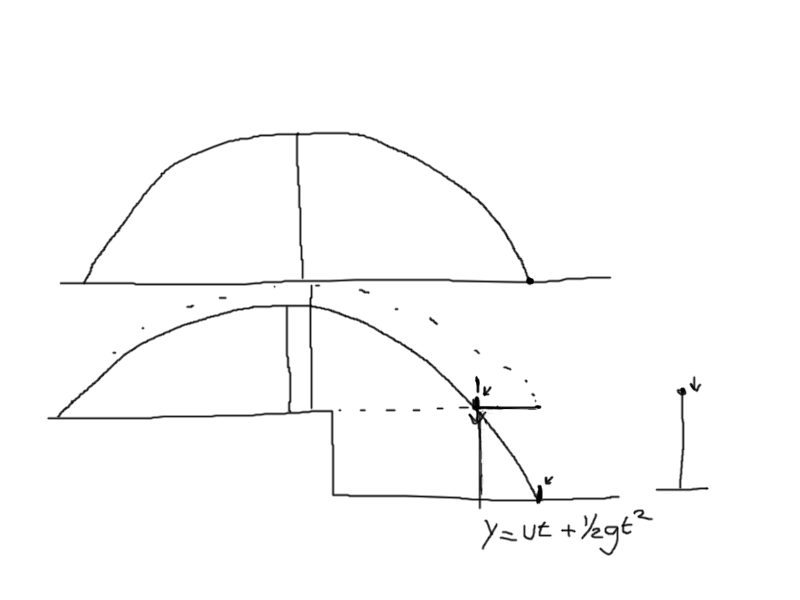 y = ut + ½gt²